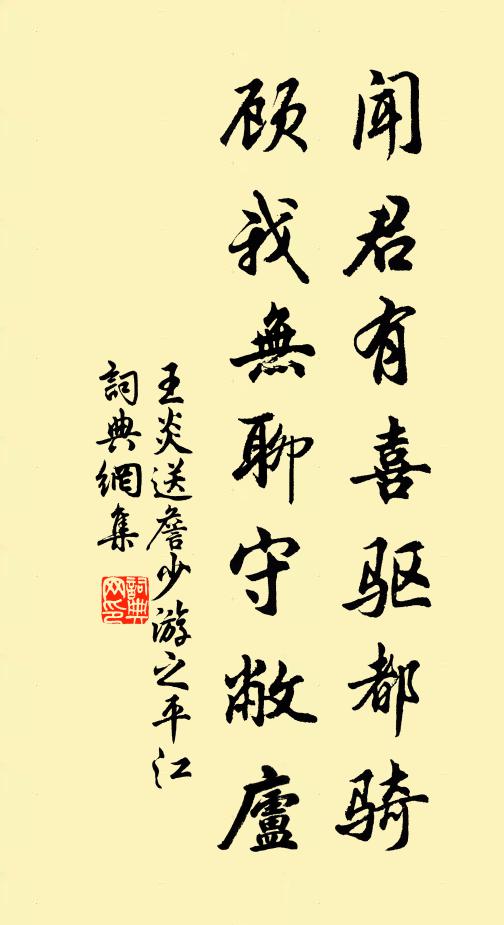 闻君有喜驱都骑
顾我無聊守敝廬
王炎送詹少游之平江
詞典網集
詞典网印